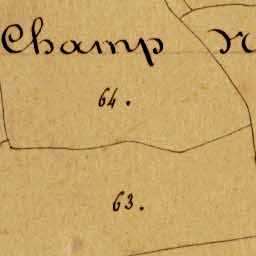 Champ
64.
63.